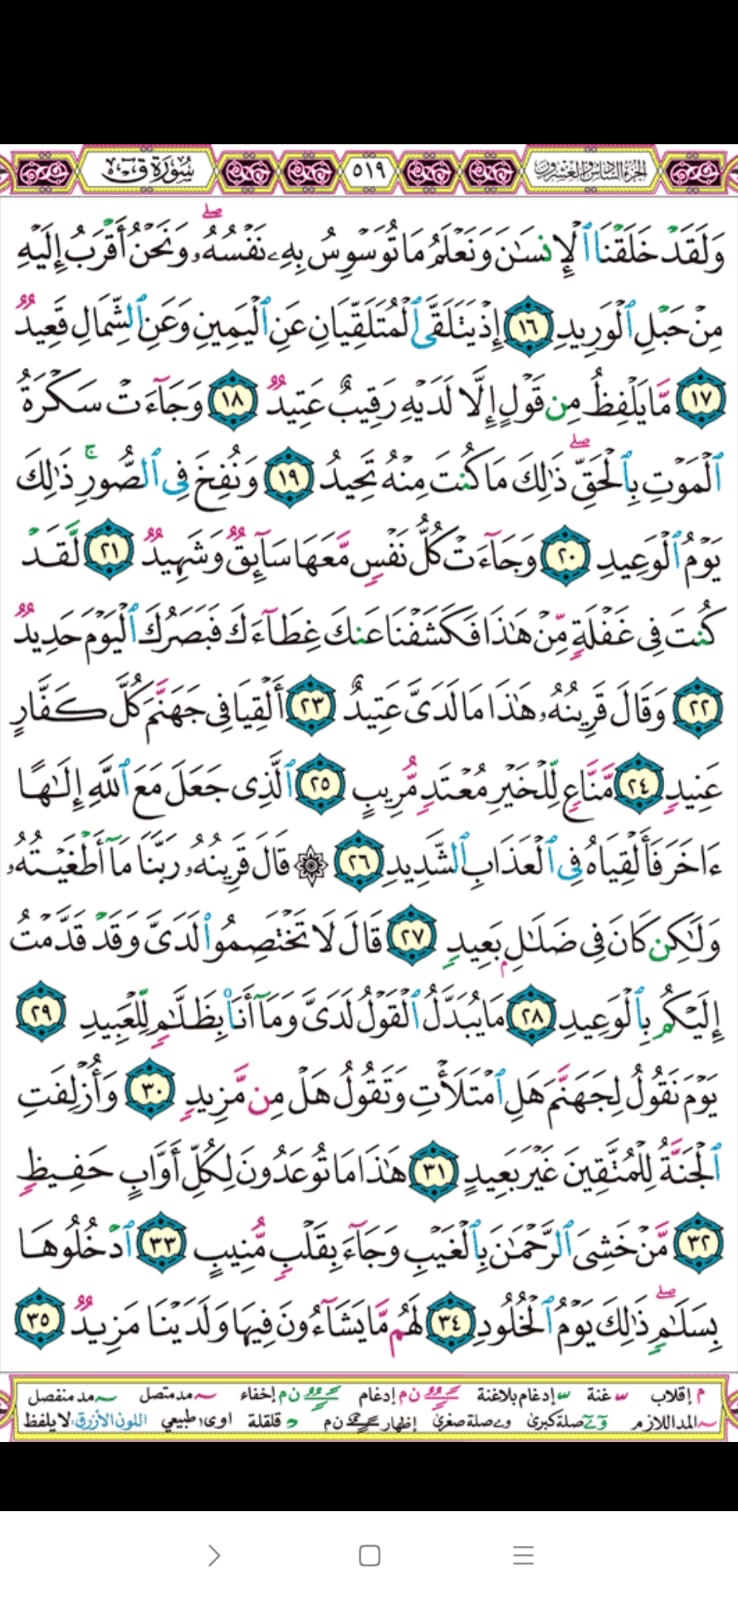 الجزء السادس والعشرون ٥١٩ سُورَةُ قٓ
وَلَقَدۡ خَلَقۡنَا ٱلۡإِنسَٰنَ وَنَعۡلَمُ مَا تُوَسۡوِسُ بِهِۦ نَفۡسُهُۥۖ وَنَحۡنُ أَقۡرَبُ إِلَيۡهِ
مِنۡ حَبۡلِ ٱلۡوَرِيدِ ١٦ إِذۡ يَتَلَقَّى ٱلۡمُتَلَقِّيَانِ عَنِ ٱلۡيَمِينِ وَعَنِ ٱلشِّمَالِ قَعِيدٞ
١٧ مَّا يَلۡفِظُ مِن قَوۡلٍ إِلَّا لَدَيۡهِ رَقِيبٌ عَتِيدٞ ١٨ وَجَآءَتۡ سَكۡرَةُ
ٱلۡمَوۡتِ بِٱلۡحَقِّۖ ذَٰلِكَ مَا كُنتَ مِنۡهُ تَحِيدُ ١٩ وَنُفِخَ فِي ٱلصُّورِۚ ذَٰلِكَ
يَوۡمُ ٱلۡوَعِيدِ ٢٠ وَجَآءَتۡ كُلُّ نَفۡسٖ مَّعَهَا سَآئِقٞ وَشَهِيدٞ ٢١ لَّقَدۡ
كُنتَ فِي غَفۡلَةٖ مِّنۡ هَٰذَا فَكَشَفۡنَا عَنكَ غِطَآءَكَ فَبَصَرُكَ ٱلۡيَوۡمَ حَدِيدٞ
٢٢ وَقَالَ قَرِينُهُۥ هَٰذَا مَا لَدَيَّ عَتِيدٌ ٢٣ أَلۡقِيَا فِي جَهَنَّمَ كُلَّ كَفَّارٍ
عَنِيدٖ ٢٤ مَّنَّاعٖ لِّلۡخَيۡرِ مُعۡتَدٖ مُّرِيبٍ ٢٥ ٱلَّذِي جَعَلَ مَعَ ٱللَّهِ إِلَٰهًا
ءَاخَرَ فَأَلۡقِيَاهُ فِي ٱلۡعَذَابِ ٱلشَّدِيدِ ٢٦ ۞ قَالَ قَرِينُهُۥ رَبَّنَا مَآ أَطۡغَيۡتُهُۥ
وَلَٰكِن كَانَ فِي ضَلَٰلِۭ بَعِيدٖ ٢٧ قَالَ لَا تَخۡتَصِمُواْ لَدَيَّ وَقَدۡ قَدَّمۡتُ
إِلَيۡكُم بِٱلۡوَعِيدِ ٢٨ مَا يُبَدَّلُ ٱلۡقَوۡلُ لَدَيَّ وَمَآ أَنَا۠ بِظَلَّٰمٖ لِّلۡعَبِيدِ ٢٩
يَوۡمَ نَقُولُ لِجَهَنَّمَ هَلِ ٱمۡتَلَأۡتِ وَتَقُولُ هَلۡ مِن مَّزِيدٖ ٣٠ وَأُزۡلِفَتِ
ٱلۡجَنَّةُ لِلۡمُتَّقِينَ غَيۡرَ بَعِيدٍ ٣١ هَٰذَا مَا تُوعَدُونَ لِكُلِّ أَوَّابٍ حَفِيظٖ
٣٢ مَّنۡ خَشِيَ ٱلرَّحۡمَٰنَ بِٱلۡغَيۡبِ وَجَآءَ بِقَلۡبٖ مُّنِيبٍ ٣٣ ٱدۡخُلُوهَا
بِسَلَٰمٖۖ ذَٰلِكَ يَوۡمُ ٱلۡخُلُودِ ٣٤ لَهُم مَّا يَشَآءُونَ فِيهَا وَلَدَيۡنَا مَزِيدٞ ٣٥
م إقلاب غنة إدغام بلاغنة ن م إدغام ن م إخفاء مد متصل مد منفصل
المد اللازم صلة كبرى صلة صغرى إظهار ن م قلقلة اوى طبيعي اللون الأزرق: لا يلفظ